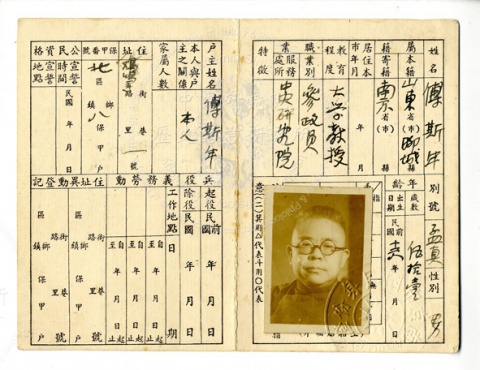 姓名 傅斯年 別號 孟真 性別 男
歲數 伍拾壹
出生日期 民國前 年 月 日
本籍 山東省(市)聊城縣
寄籍 南京省(市) 縣
居住本市年月
教育程度 大學教授
職業別 參政員
服務處所 中央研究院
特徵
戶主姓名 傅斯年
本人與戶主之關係 本人
家屬人數
住址 雞鳴 街路 巷里 一號
北區 鄉鎮 八保 甲戶
公民資格 宣誓時間 民國 年 月 日
宣誓地點
兵役 起役民國 年 月 日
除役民國 年 月 日
義務勞動 工作地點 日期
自 年 月 日起
至 年 月 日止
自 年 月 日起
至 年 月 日止
住址異動登記
區 鄉鎮 保甲戶
街路 巷里 號
區 鄉鎮 保甲戶
街路 巷里 號
(二)箕用△代表斗用○代表